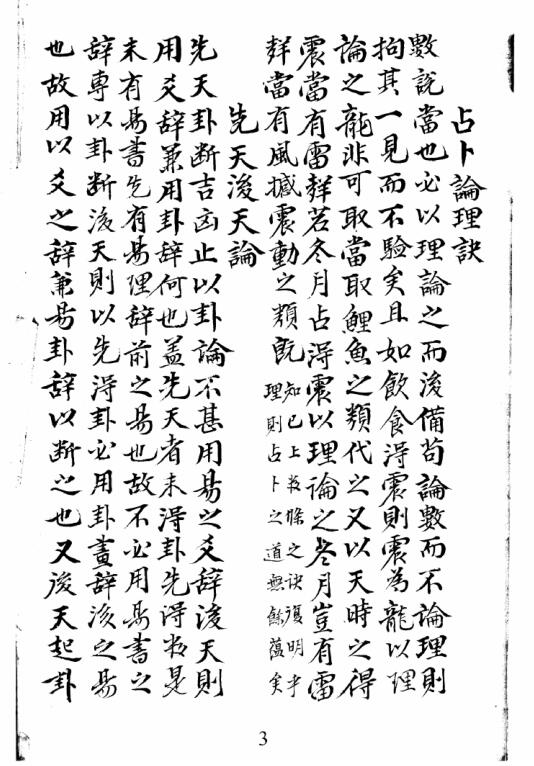 占卜論理訣
數說當也必以理論之而後備苟論數而不論理則
拘其一見而不驗矣且如飲食得震則震為龍以理
論之龍非可取當取鯉魚之類代之又以天時之得
震當有雷聲若冬月占得震以理論之冬月豈有雷
聲當有風撼震動之類既知已上数條之訣復明乎理則占卜之道無餘蘊矣
先天後天論
先天卦斷吉凶止以卦論不甚用易之爻辞後天則
用爻辞兼用卦辞何也盖先天者未得卦先得数是
未有易書先有易理辞前之易也故不必用易書之
辞專以卦斷後天則以先得卦必用卦畫辞後之易
也故用以爻之辞兼易卦辞以断之也又後天起卦
3